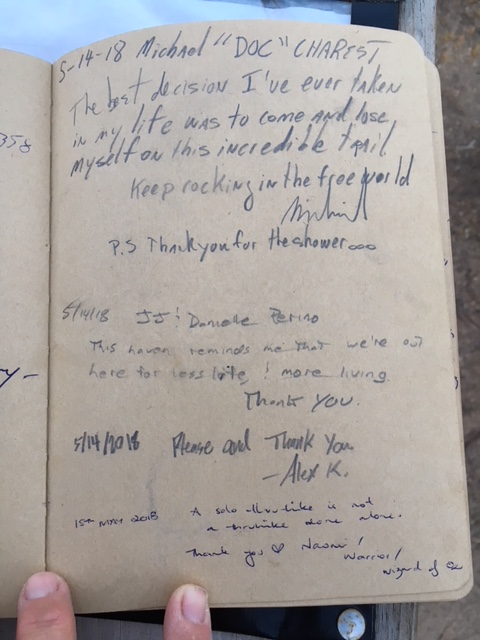 5-14-18 Michael "DOC" CHAREST
The best decision I've ever taken
in my life was to come and lose
myself on this incredible trail
Keep rocking in the free world
P.S Thank you for the shower...
5/14/18 JJ & Danielle Zerino
This haven reminds me that we're out
here for less life, & more living.
Thank you.
5/14/2018 Please and Thank You
- Alex K.
15th MAY 2018 A solo thru-hike is not
a thruhike done alone.
Thank you ♡ Naomi!
Warrior!
Wizard of Oz
358
y-